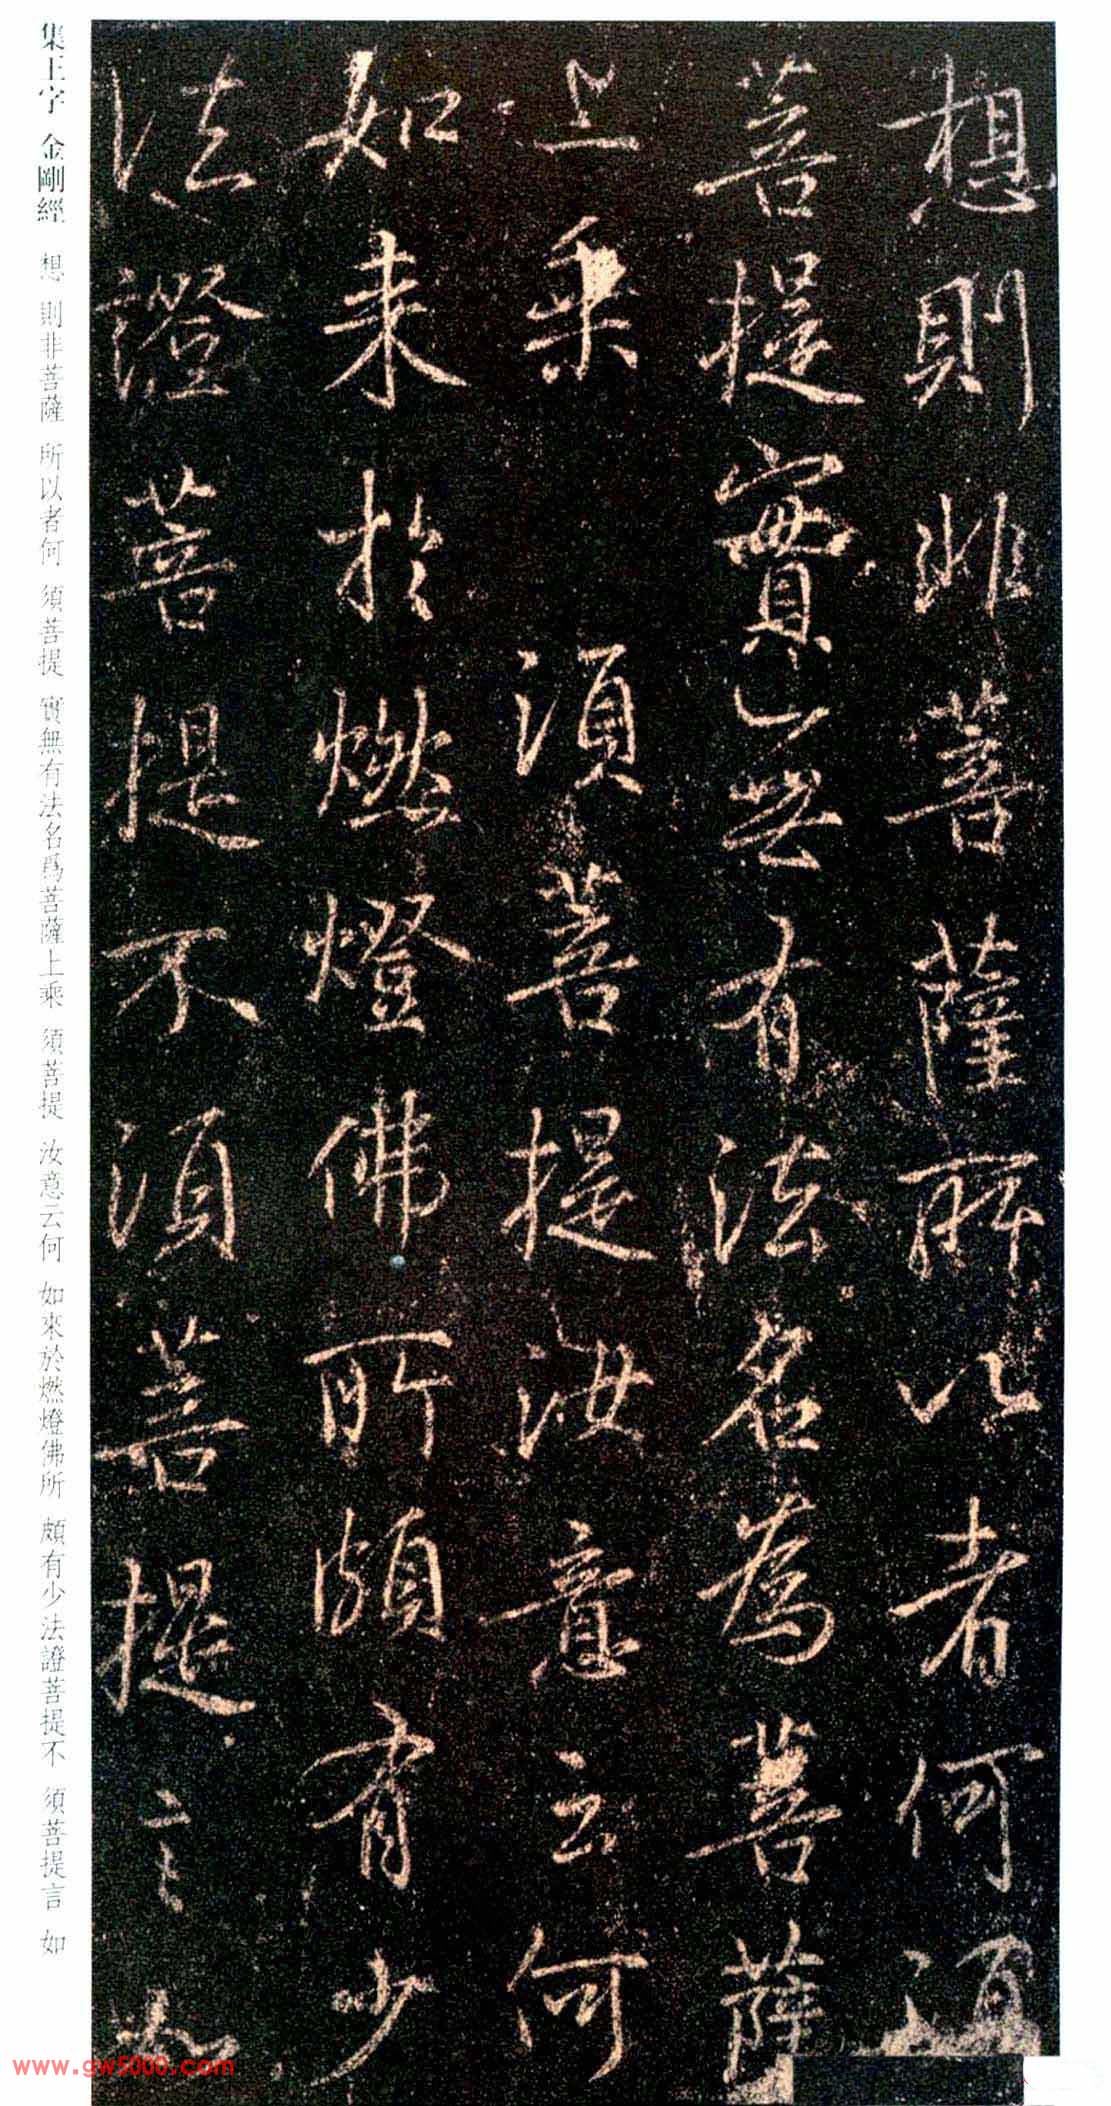 想則非菩薩所以者何須
菩提實無有法名為菩薩
上乘須菩提汝意云何
如来於燃燈佛所頗有少
法證菩提不須菩提言如
集王字 金剛經 想 則非菩薩 所以者何 須菩提 實無有法名爲菩薩上乘 須菩提 汝意云何 如來於燃燈佛所 頗有少法證菩提不 須菩提言 如
www.gw5000.com